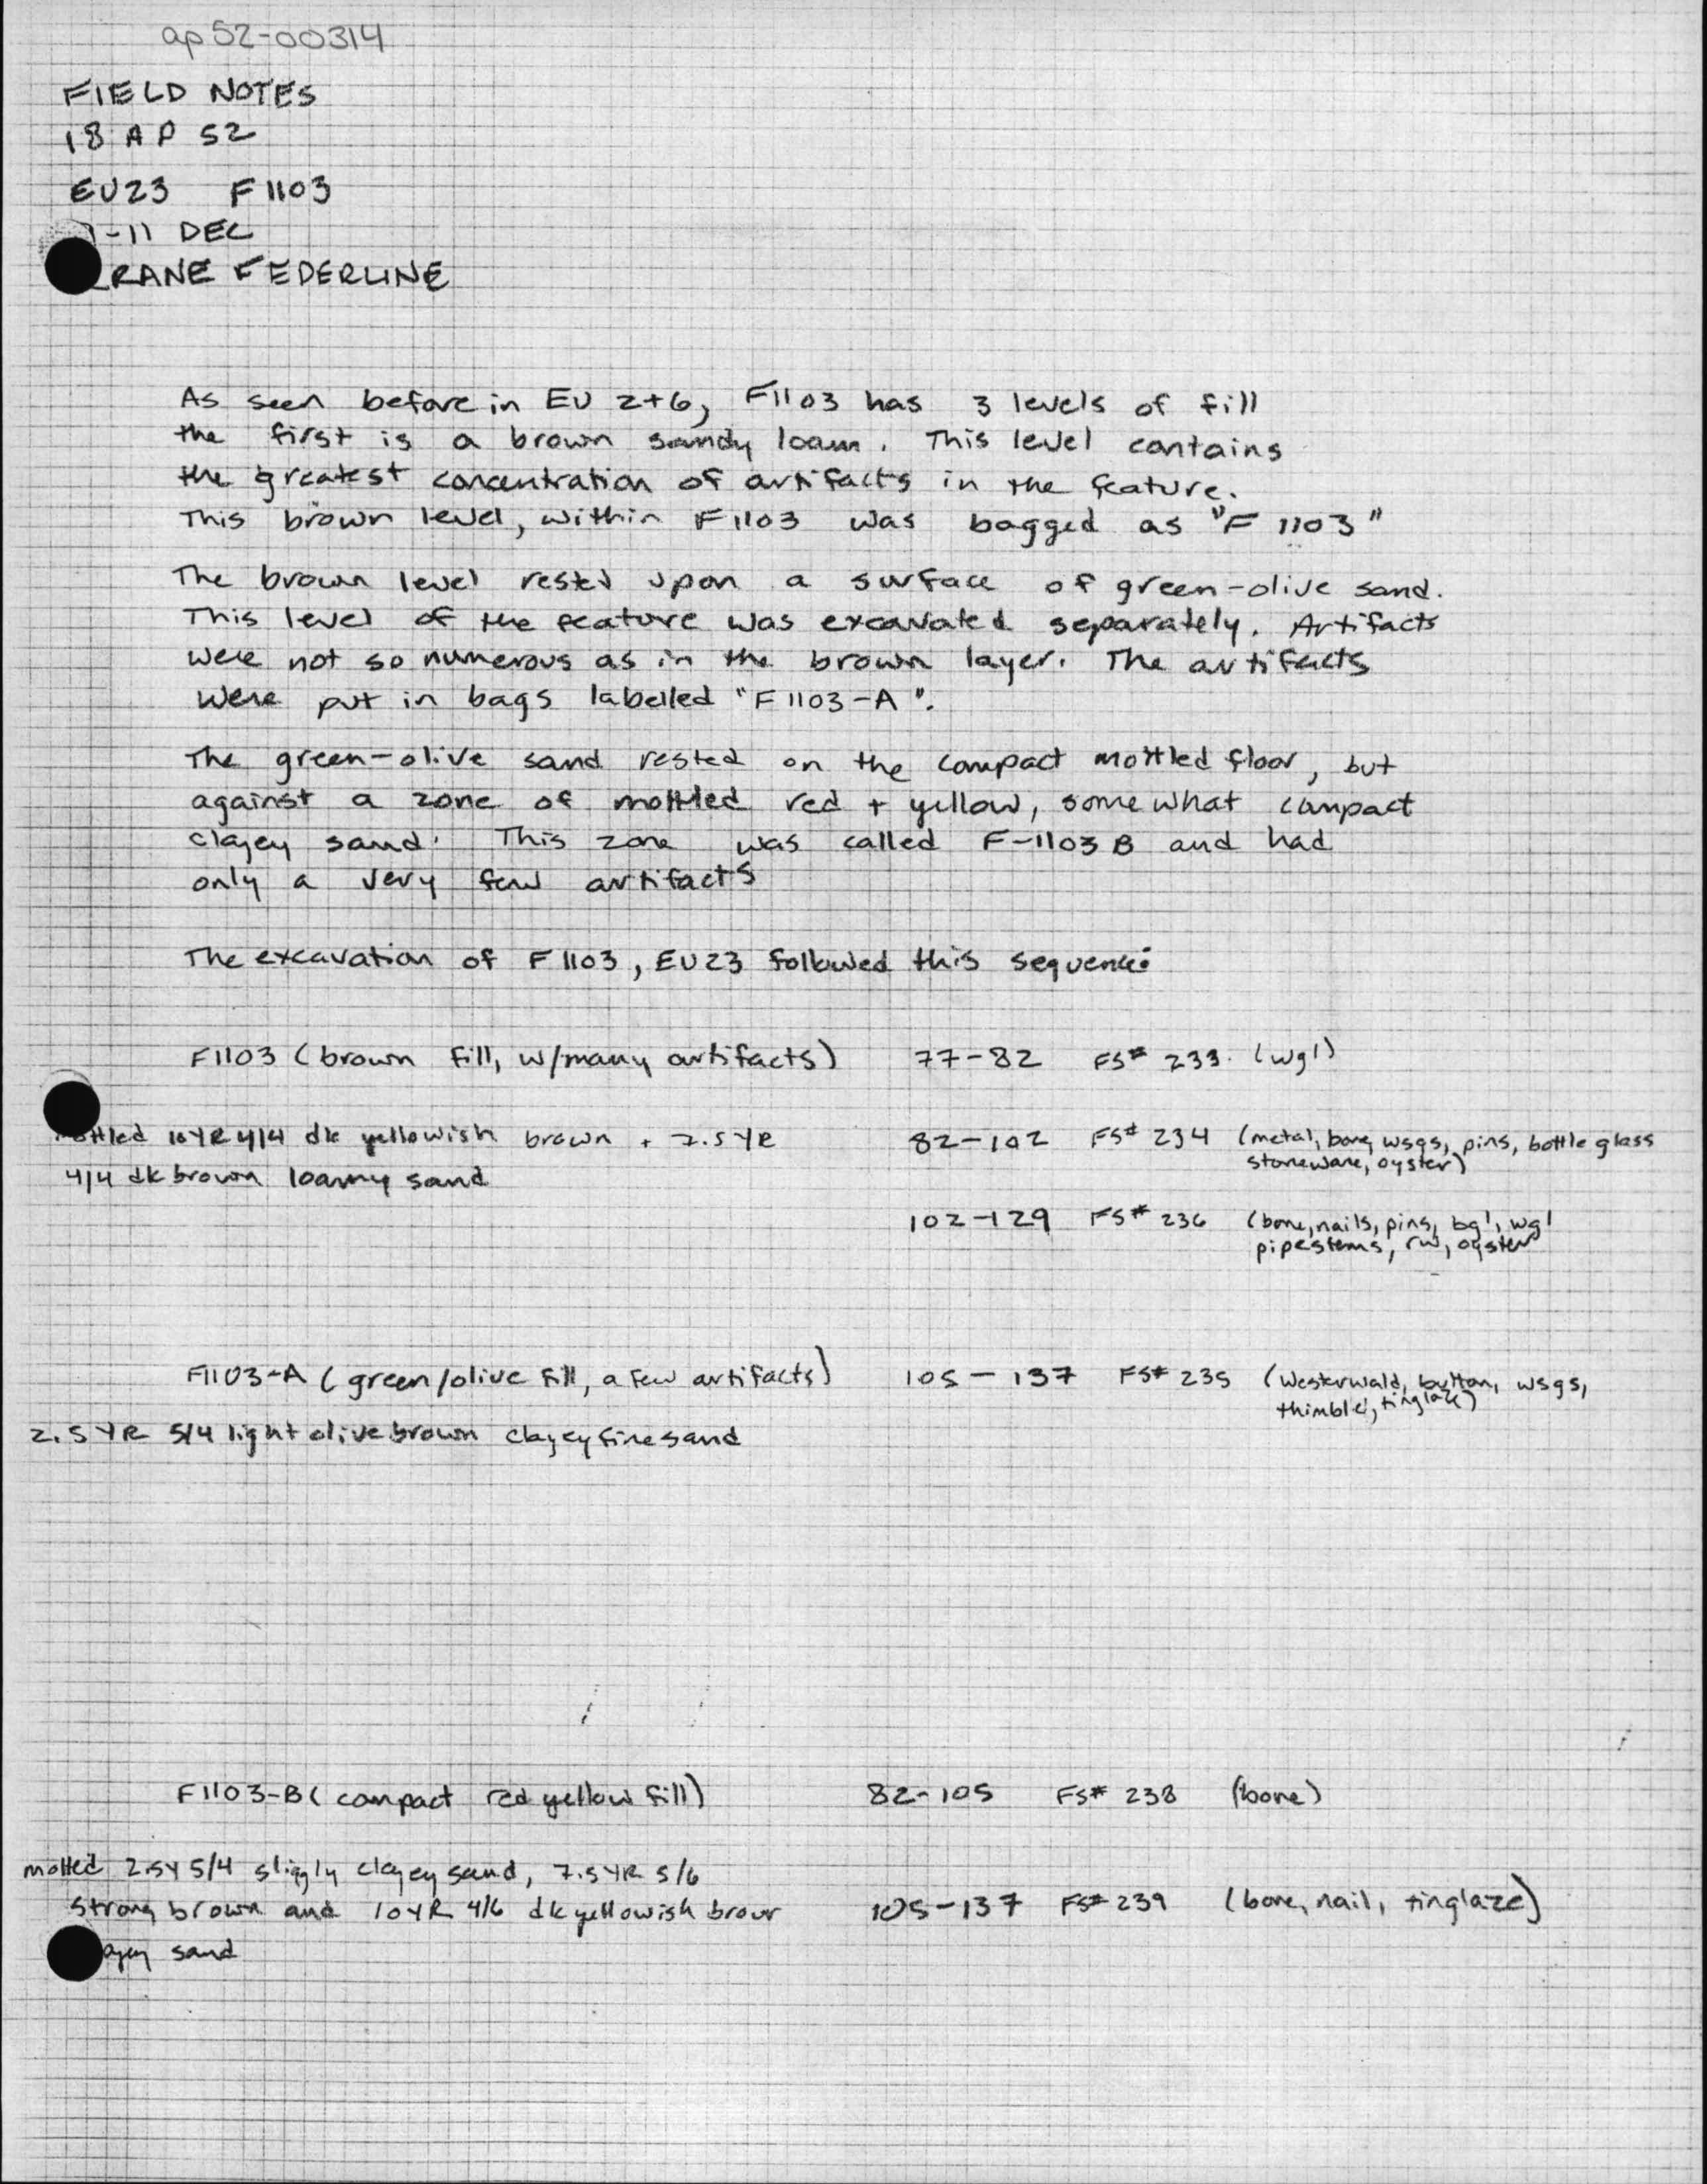 ap52-00314
FIELD NOTES
18 AP 52
EU23 F1103
-11 DEC
RANE FEDERLINE
As seen before in EU 2+6, F1103 has 3 levels of fill
the first is a brown sandy loam. This level contains
the greatest concentration of artifacts in the feature.
This brown level, within F1103 was bagged as "F 1103"
The brown level rested upon a surface of green-olive sand.
This level of the feature was excavated separately. Artifacts
were not so numerous as in the brown layer. The artifacts
were put in bags labelled "F1103-A".
The green-olive sand rested on the compact mottled floor, but
against a zone of mottled red + yellow, somewhat compact
clayey sand. This zone was called F-1103B and had
only a very few artifacts
The excavation of F1103, EU23 followed this sequence:
F1103 (brown fill, w/many artifacts) 77-82 FS# 233. (wgl)
mottled 10YR 4/4 dk yellowish brown + 7.5YR 82-102 FS# 234 (metal, bone, wsgs, pins, bottle glass
4/4 dk brown loamy sand stoneware, oyster)
102-129 FS# 236 (bone, nails, pins, bgl, wgl
pipestems, rw, oyster
F1103-A (green/olive fill, a few artifacts) 105-137 FS# 235 (Westerwald, button, wsgs,
thimble, tinglaze)
2.5YR 5/4 light olive brown clayey fine sand
F1103-B (compact red yellow fill) 82-105 FS# 238 (bone)
motted 2.5Y 5/4 sliggly clayey sand, 7.5YR 5/6
strong brown and 10YR 4/6 dk yellowish brown 105-137 FS# 239 (bone, nail, tinglaze)
ayey sand